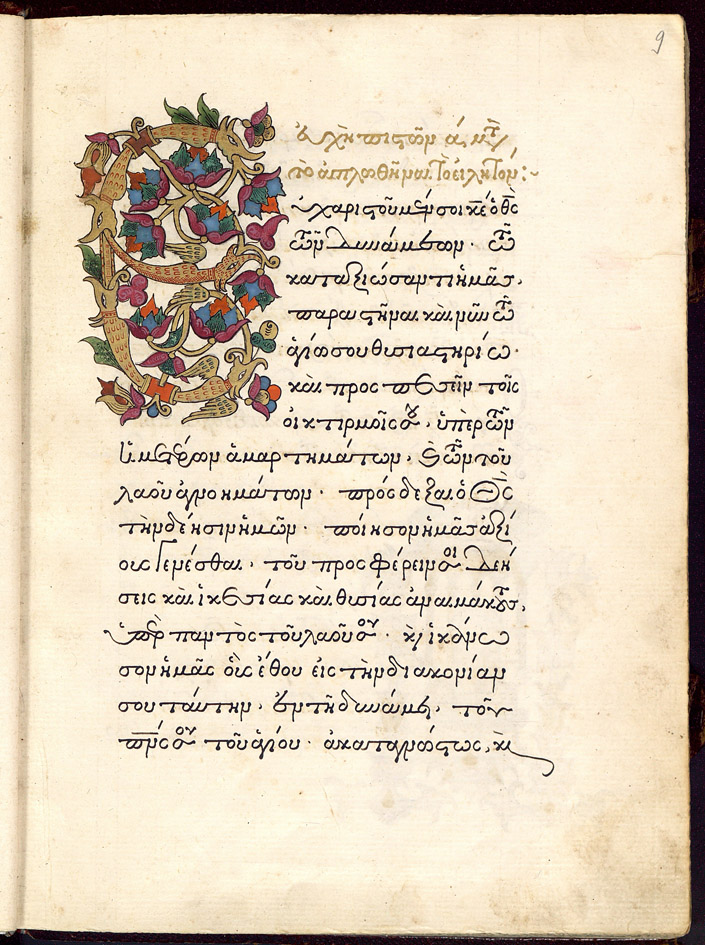 Εὐχὴ πιστῶν ά, μτ̀
τὸ ἁπλωθῆναι τὸ εἰλητόν:~
Εὐχαριστοῦμέν σοι κ̅ε̅ ὁ θ̅ς̅
τῶν δυνάμεων· τῶ
καταξιώσαντι ἡμᾶς,
παραστῆναι καὶ νῦν τῶ
ἁγίω σου θισιαστηρίω·
καὶ προσπεσεῖν τοῖς
οἰκτιρμοῖς σου, ὑπὲρ τῶν
ἡμετέρων ἁμαρτημάτων, ϗ τῶν τοῦ
λαοῦ ἀγνοημάτων· πρόσδεξαι ὁ Θ̅ς̅
τὴν δέησιν ἡμῶν· ποίησον ἡμᾶς ἀξί
ους γενέσθαι, τοῦ προσφέρειν σοι δεή
σεις καὶ ἱκεσίας καὶ θισίας ἀναιμάκτους,
ὑπὲρ παντὸς τοῦ λαοῦ σου· ϗ ἱκάνω
σον ἡμᾶς οὓς ἔθου εἰς τὴν διακονίαν
σου ταύτην, ἐν τῆ δυνάμει, τοῦ
π̅ν̅ς̅ σου τοῦ ἁγίου· ἀκαταγνώστως, ϗ
9